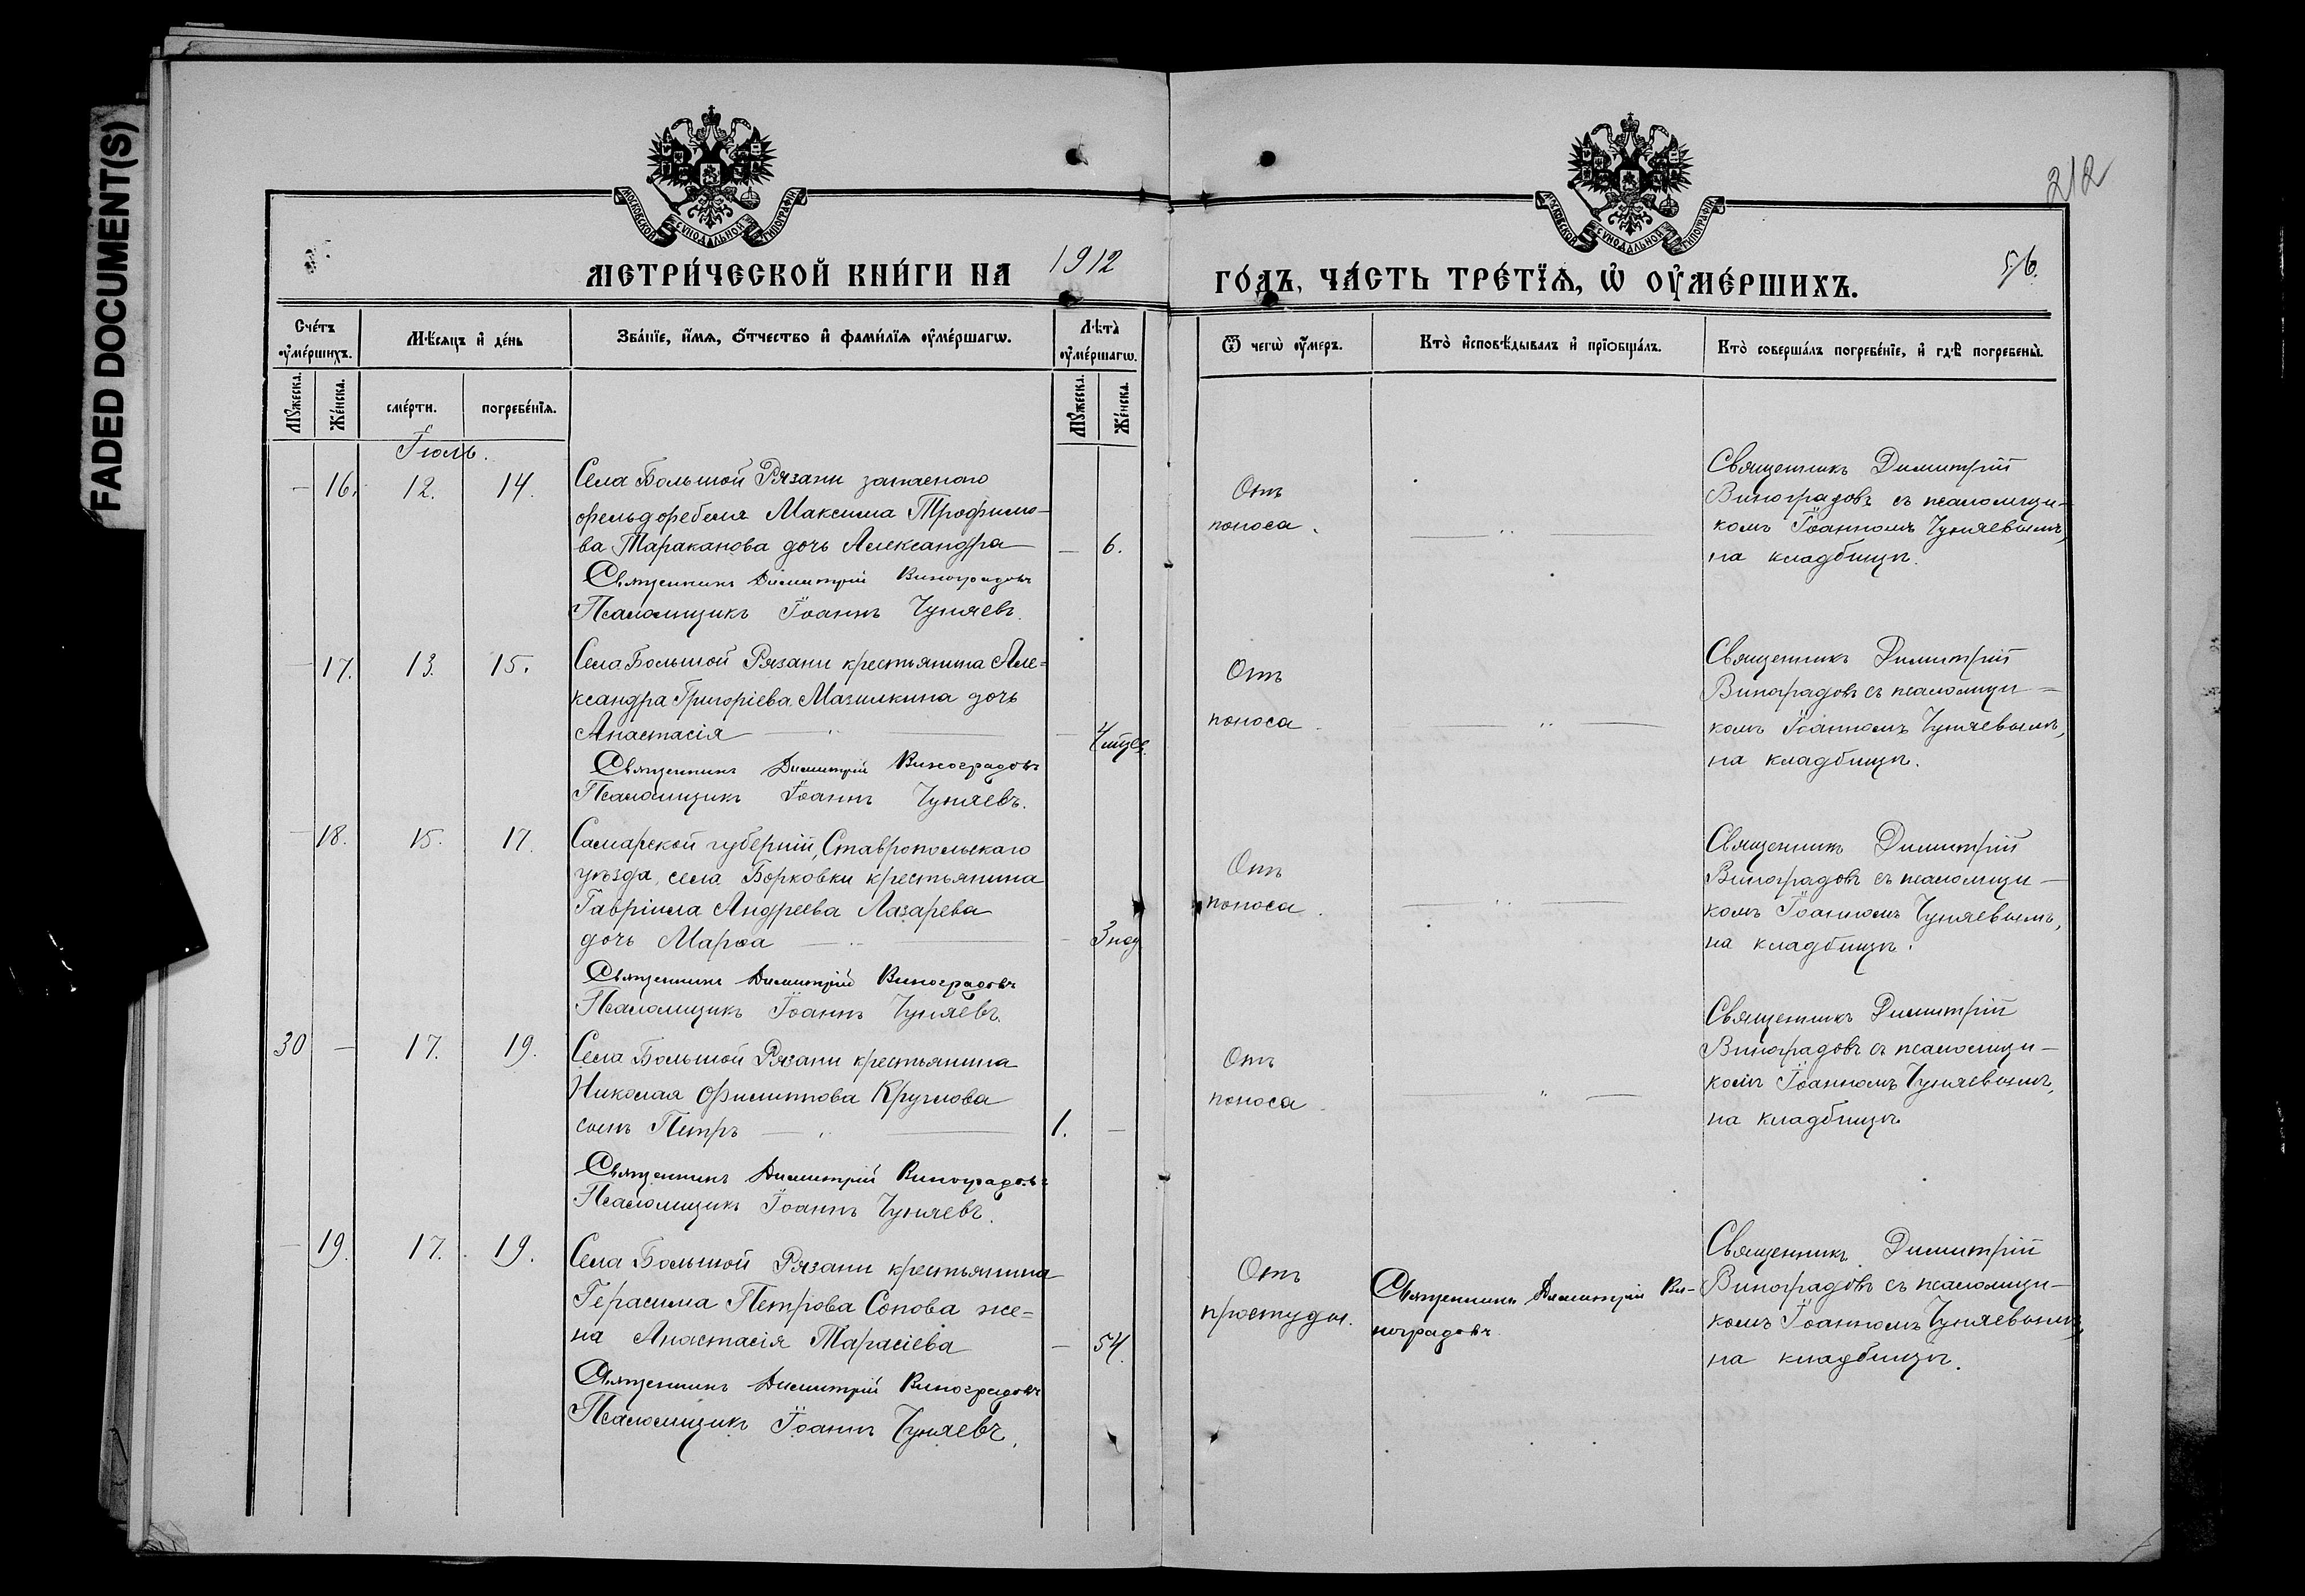 FADED DOCUMENT(S)
МОСКОВСКОЙ СѴНОДАЛЬНОЙ ТИПОГРАФІИ
МОСКОВСКОЙ СѴНОДАЛЬНОЙ ТИПОГРАФІИ
212
МЕТРИ́ЧЕСКОЙ КНИ́ГИ НА 1912 ГО́ДЪ, ЧА́СТЬ ТРЕ́ТЇѦ, Ѡ҆ ОУ҆МЕ́РШИХЪ.
56.
Сче́тъ оу҆ме́ршихъ.
Мѣ́сяцъ и҆ де́нь
Зва́нїе, и҆́мѧ, ѻ҆́тчество и҆ фами́лїѧ оу҆ме́ршагѡ.
Лѣ́та̀ оу҆ме́ршагѡ.
Ѿ чегѡ̀ оу҆́меръ.
Кто̀ и҆сповѣ́дывалъ и҆ прїѻбща́лъ.
Кто̀ соверша́лъ погребе́нїе, и҆ гдѣ̀ погребены̀.
Мꙋ́жеска.
Же́нска.
сме́рти.
погребе́нїѧ.
Мꙋ́жеска.
Же́нска.
Іюль.
— 16. 12. 14.
Села Большой Рязани запаснаго
фельдфебеля Максима Трофимо-
ва Тараканова дочь Александра — 6.
Священникъ Димитрій Виноградовъ
Псаломщикъ Іоаннъ Чуняевъ.
Отъ
поноса.
— „ —
Священникъ Димитрій
Виноградовъ съ псаломщи-
комъ Іоанномъ Чуняевымъ,
на кладбищѣ.
— 17. 13. 15.
Села Большой Рязани крестьянина Але=
ксандра Григоріева Мазилкина дочь
Анастасія — „ — — 4 мѣс.
Священникъ Димитрій Виноградовъ
Псаломщикъ Іоаннъ Чуняевъ.
Отъ
поноса.
— „ —
Священникъ Димитрій
Виноградовъ съ псаломщи=
комъ Іоанномъ Чуняевымъ,
на кладбищѣ.
— 18. 15. 17.
Самарской губерніи, Ставропольскаго
уѣзда, села Борковки крестьянина
Гавріила Андреева Лазарева
дочь Марѳа — „ — — 3 нед.
Священникъ Димитрій Виноградовъ
Псаломщикъ Іоаннъ Чуняевъ.
Отъ
поноса.
— „ —
Священникъ Димитрій
Виноградовъ съ псаломщи-
комъ Іоанномъ Чуняевымъ,
на кладбищѣ.
30 — 17. 19.
Села Большой Рязани крестьянина
Николая Филиппова Круглова
сынъ Петръ — „ — 1. —
Священникъ Димитрій Виноградовъ
Псаломщикъ Іоаннъ Чуняевъ.
Отъ
поноса.
— „ —
Священникъ Димитрій
Виноградовъ съ псаломщи-
комъ Іоанномъ Чуняевымъ,
на кладбищѣ.
— 19. 17. 19.
Села Большой Рязани крестьянина
Герасима Петрова Сонова же=
на Анастасія Тарасіева — 54.
Священникъ Димитрій Виноградовъ
Псаломщикъ Іоаннъ Чуняевъ.
Отъ
простуды.
Священникъ Димитрій Ви-
ноградовъ.
Священникъ Димитрій
Виноградовъ съ псаломщи-
комъ Іоанномъ Чуняевымъ,
на кладбищѣ.